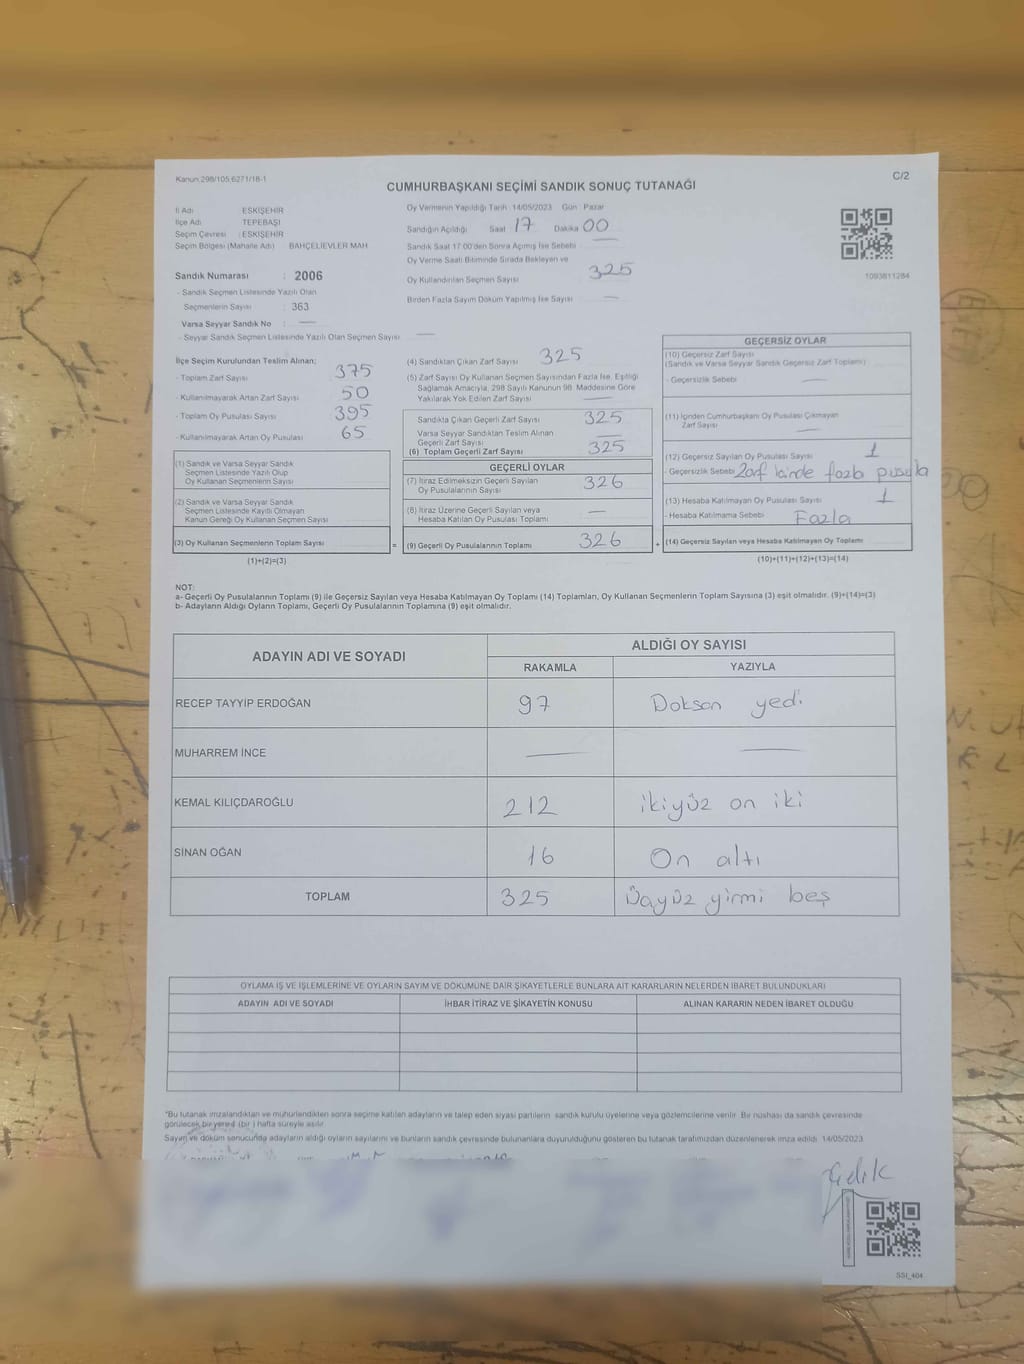 Kanun 298/105 6271/18-1
C/2
CUMHURBAŞKANI SEÇİMİ SANDIK SONUÇ TUTANAĞI
İl Adı : ESKİŞEHİR
İlçe Adı : TEPEBAŞI
Seçim Çevresi : ESKİŞEHİR
Seçim Bölgesi (Mahalle Adı) BAHÇELİEVLER MAH
Sandık Numarası : 2006
- Sandık Seçmen Listesinde Yazılı Olan
Seçmenlerin Sayısı : 363
Varsa Seyyar Sandık No : —
- Seyyar Sandık Seçmen Listesinde Yazılı Olan Seçmen Sayısı —
Oy Vermenin Yapıldığı Tarih : 14/05/2023 Gün : Pazar
Sandığın Açıldığı Saat 17 Dakika 00
Sandık Saat 17.00'den Sonra Açılmış İse Sebebi —
Oy Verme Saati Bitiminde Sırada Bekleyen ve
Oy Kullandırılan Seçmen Sayısı 325
Birden Fazla Sayım Döküm Yapılmış İse Sayısı —
1093811284
İlçe Seçim Kurulundan Teslim Alınan;
- Toplam Zarf Sayısı 375
- Kullanılmayarak Artan Zarf Sayısı 50
- Toplam Oy Pusulası Sayısı 395
- Kullanılmayarak Artan Oy Pusulası 65
(1) Sandık ve Varsa Seyyar Sandık
Seçmen Listesinde Yazılı Olup
Oy Kullanan Seçmenlerin Sayısı
(2) Sandık ve Varsa Seyyar Sandık
Seçmen Listesinde Kayıtlı Olmayan
Kanun Gereği Oy Kullanan Seçmen Sayısı
(3) Oy Kullanan Seçmenlerin Toplam Sayısı
(1)+(2)=(3)
(4) Sandıktan Çıkan Zarf Sayısı 325
(5) Zarf Sayısı Oy Kullanan Seçmen Sayısından Fazla İse, Eşitliği
Sağlamak Amacıyla, 298 Sayılı Kanunun 98. Maddesine Göre
Yakılarak Yok Edilen Zarf Sayısı —
Sandıkta Çıkan Geçerli Zarf Sayısı 325
Varsa Seyyar Sandıktan Teslim Alınan
Geçerli Zarf Sayısı —
(6) Toplam Geçerli Zarf Sayısı 325
GEÇERLİ OYLAR
(7) İtiraz Edilmeksizin Geçerli Sayılan
Oy Pusulasının Sayısı 326
(8) İtiraz Üzerine Geçerli Sayılan veya
Hesaba Katılan Oy Pusulası Toplamı —
= (9) Geçerli Oy Pusulalarının Toplamı 326 +
GEÇERSİZ OYLAR
(10) Geçersiz Zarf Sayısı
(Sandık ve Varsa Seyyar Sandık Geçersiz Zarf Toplamı)
- Geçersizlik Sebebi —
(11) İçinden Cumhurbaşkanı Oy Pusulası Çıkmayan
Zarf Sayısı —
(12) Geçersiz Sayılan Oy Pusulası Sayısı 1
- Geçersizlik Sebebi Zarf içinde fazla pusula
(13) Hesaba Katılmayan Oy Pusulası Sayısı 1
- Hesaba Katılmama Sebebi Fazla
(14) Geçersiz Sayılan veya Hesaba Katılmayan Oy Toplamı
(10)+(11)+(12)+(13)=(14)
NOT:
a- Geçerli Oy Pusulalarının Toplamı (9) ile Geçersiz Sayılan veya Hesaba Katılmayan Oy Toplamı (14) Toplamları, Oy Kullanan Seçmenlerin Toplam Sayısına (3) eşit olmalıdır. (9)+(14)=(3)
b- Adayların Aldığı Oyların Toplamı, Geçerli Oy Pusulalarının Toplamına (9) eşit olmalıdır.
ADAYIN ADI VE SOYADI
ALDIĞI OY SAYISI
RAKAMLA YAZIYLA
RECEP TAYYİP ERDOĞAN 97 Doksan yedi
MUHARREM İNCE — —
KEMAL KILIÇDAROĞLU 212 ikiyüz on iki
SİNAN OĞAN 16 On altı
TOPLAM 325 Üçyüz yirmi beş
OYLAMA İŞ VE İŞLEMLERİNE VE OYLARIN SAYIM VE DÖKÜMÜNE DAİR ŞİKAYETLERLE BUNLARA AİT KARARLARIN NELERDEN İBARET BULUNDUKLARI
ADAYIN ADI VE SOYADI İHBAR İTİRAZ VE ŞİKAYETİN KONUSU ALINAN KARARIN NEDEN İBARET OLDUĞU
*Bu tutanak imzalandıktan ve mühürlendikten sonra seçime katılan adayların ve talep eden siyasi partilerin sandık kurulu üyelerine veya gözlemcilerine verilir. Bir nüshası da sandık çevresinde
görülecek bir yere (bir) hafta süreyle asılır.
Sayım ve döküm sonucunda adayların aldığı oyların sayılarını ve bunların sandık çevresinde bulunanlara duyurulduğunu gösteren bu tutanak tarafımızdan düzenlenerek imza edildi. 14/05/2023
SSİ_404